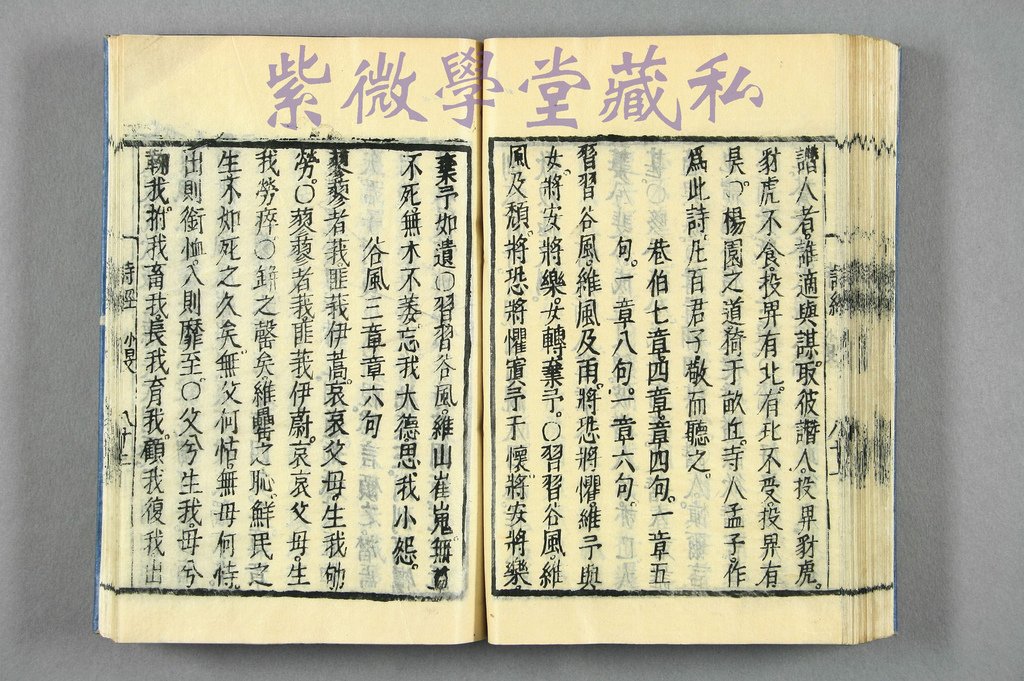 紫微學堂藏私
譖人者誰適與謀取彼譖人投畀豺虎
豺虎不食投畀有北有北不受投畀有
昊〇楊園之道猗于畝丘寺人孟子作
爲此詩凡百君子敬而聽之
巷伯七章四章章四句一章五
句一章八句一章六句
習習谷風維風及雨將恐將懼維予與
女將安將樂女轉棄予〇習習谷風維
風及頹將恐將懼寘予于懷將安將樂
棄予如遺〇習習谷風維山崔嵬無草
不死無木不萎忘我大德思我小怨
谷風三章章六句
蓼蓼者莪匪莪伊蒿哀哀父母生我劬
勞〇蓼蓼者莪匪莪伊蔚哀哀父母生
我勞瘁〇缾之罄矣維罍之恥鮮民之
生不如死之久矣無父何怙無母何恃
出則銜恤入則靡至〇父兮生我母兮
鞠我拊我畜我長我育我顧我復我出
詩經 小旻